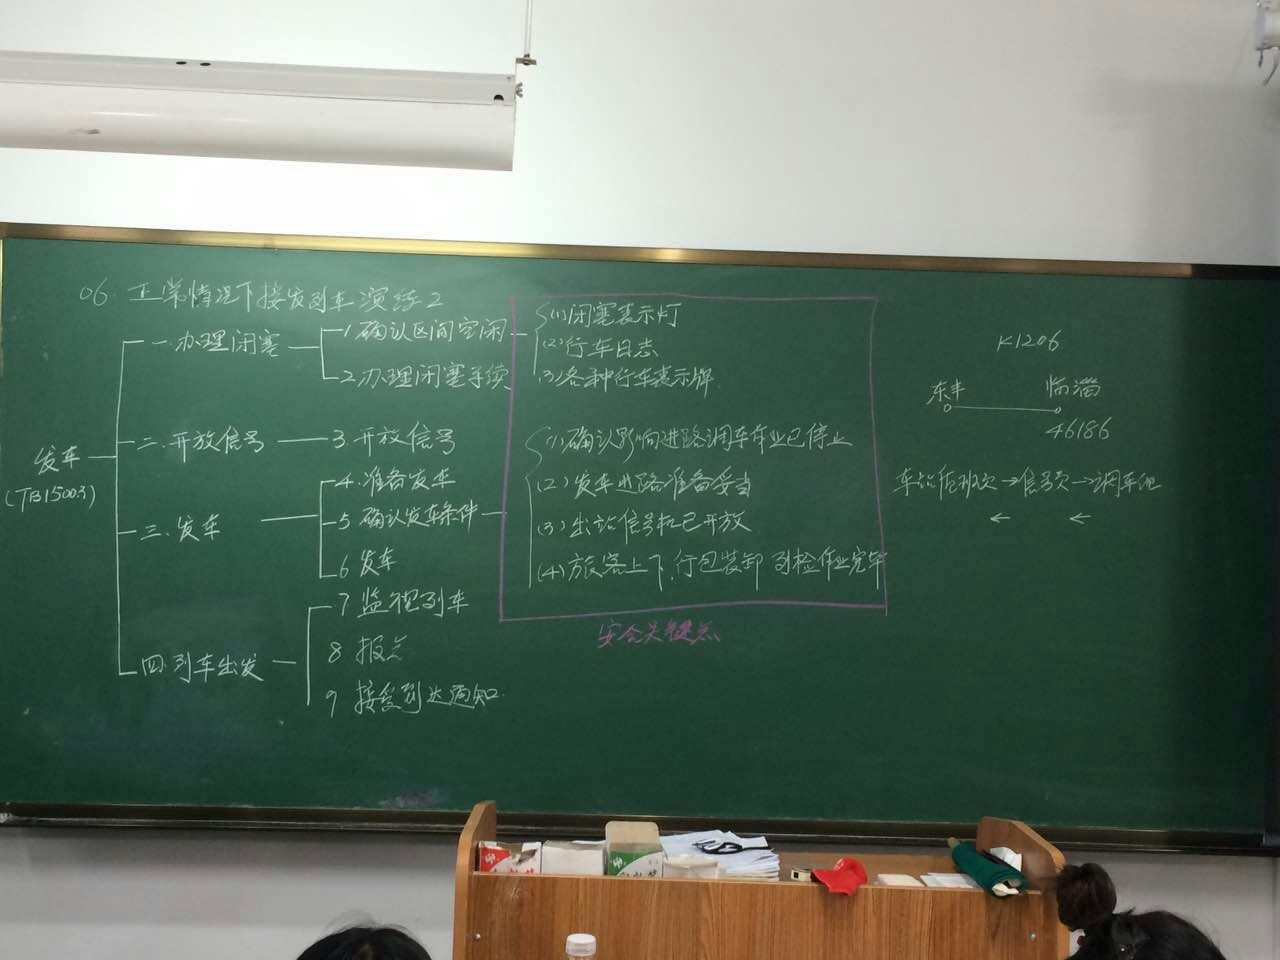 06. 正常情况下接发列车演练2
发车
(TB1500.3)
一.办理闭塞
1.确认区间空闲
(1)闭塞表示灯
(2)行车日志
(3)各种行车表示牌
2.办理闭塞手续
二.开放信号
3.开放信号
三.发车
4.准备发车
5.确认发车条件
(1)确认影响进路调车作业已停止
(2)发车进路准备妥当
(3)出站信号机已开放
(4)旅客上下、行包装卸 列检作业完毕
6 发车
四.列车出发
7 监视列车
8 报点
9 接受到达通知.
安全关键点
K1206
东丰 临淄
46186
车站值班员→信号员→调车组
← ←